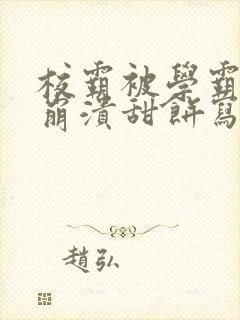 校霸被學霸
崩潰甜餅寫
趙弘